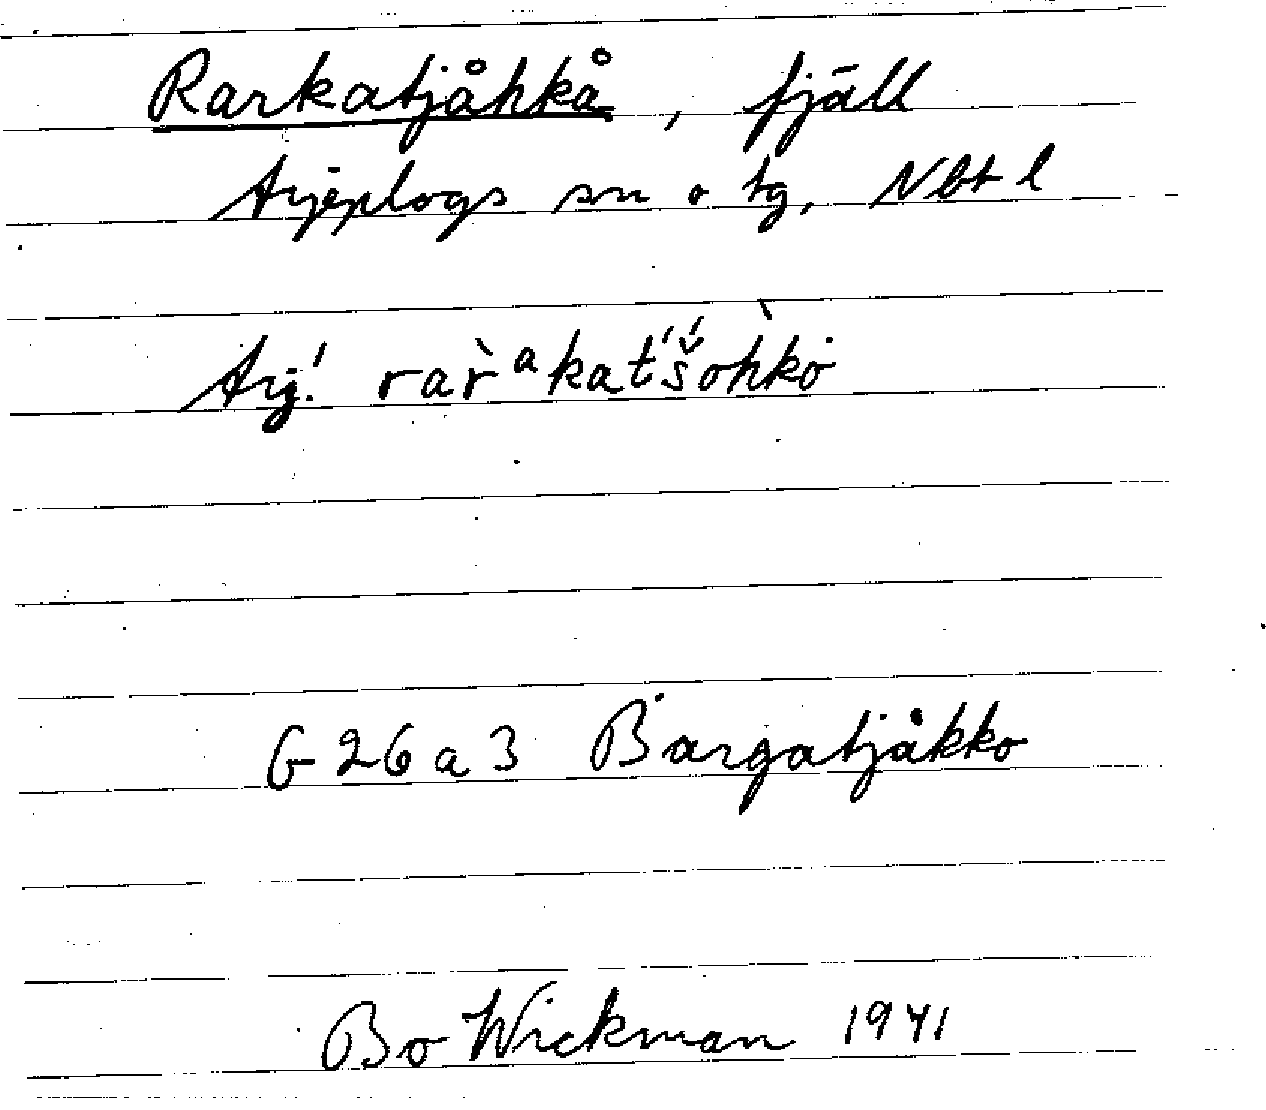 Rarkatjåhkå, fjäll
Arjeplogs sn o tg, Nbt l
Arj! rar̀ᵃkat́š́oh̀kȯ
G 26 a 3 Bargatjåkko
Bo Wickman 1941